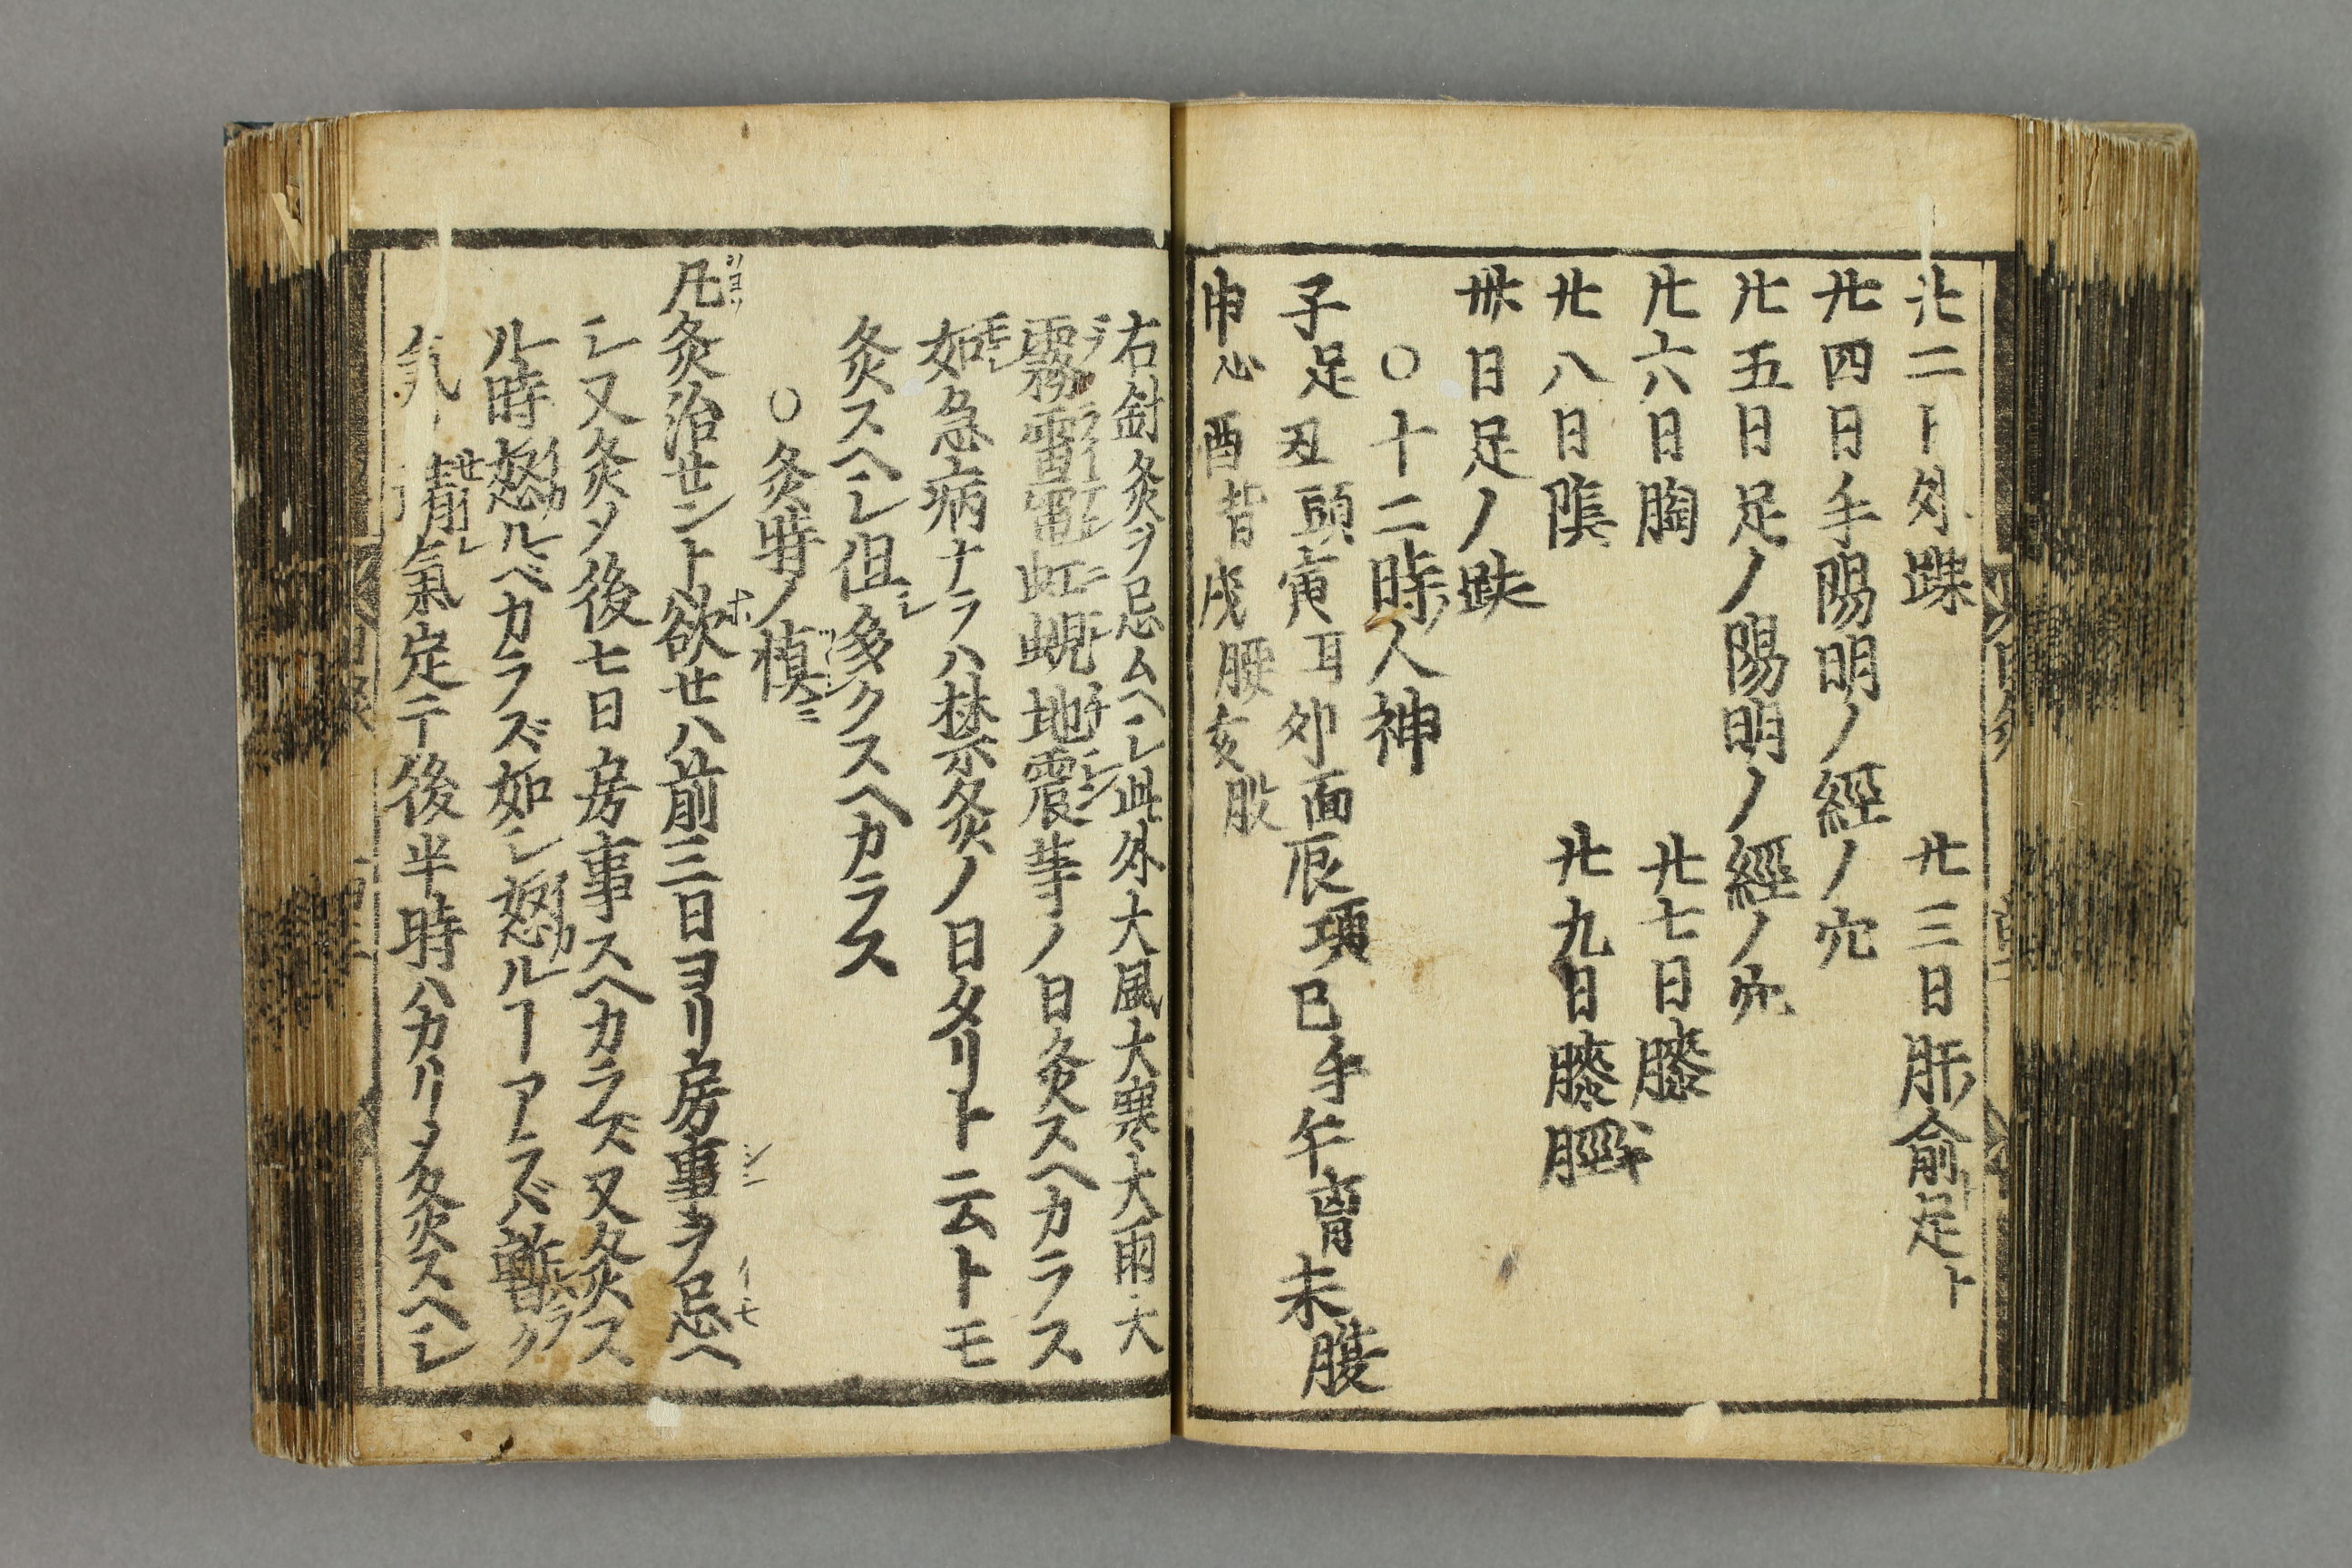 廿二ト外踝　廿三日肝俞足ト
廿四日手陽明ノ經ノ穴
廿五日足ノ陽明ノ經ノ穴
廿六日胸　廿七日膝
廿八日陰　廿九日膝脛
卅日足ノ趺
〇十二時人神
子足丑頭寅耳夘面辰項巳手午胷未腹
申心酉背戌腰亥股
右針灸ヲ忌ムヘシ此外大風大寒大雨大
霧雷電虹蜺地震等ノ日灸スヘカラス
如急病ナラハ禁灸ノ日タリト云トモ
灸スヘシ但シ多クスヘカラス
〇灸時ノ慎ミ
凡灸治せント欲せハ前三日ヨリ房事ヲ忌ヘ
シ又灸メ後七日房事スヘカラズ又灸ス
ル時怒ルベカラズ如シ怒ルヿアラズ暫ク
氣定テ後半時ハカリメ灸スヘシ